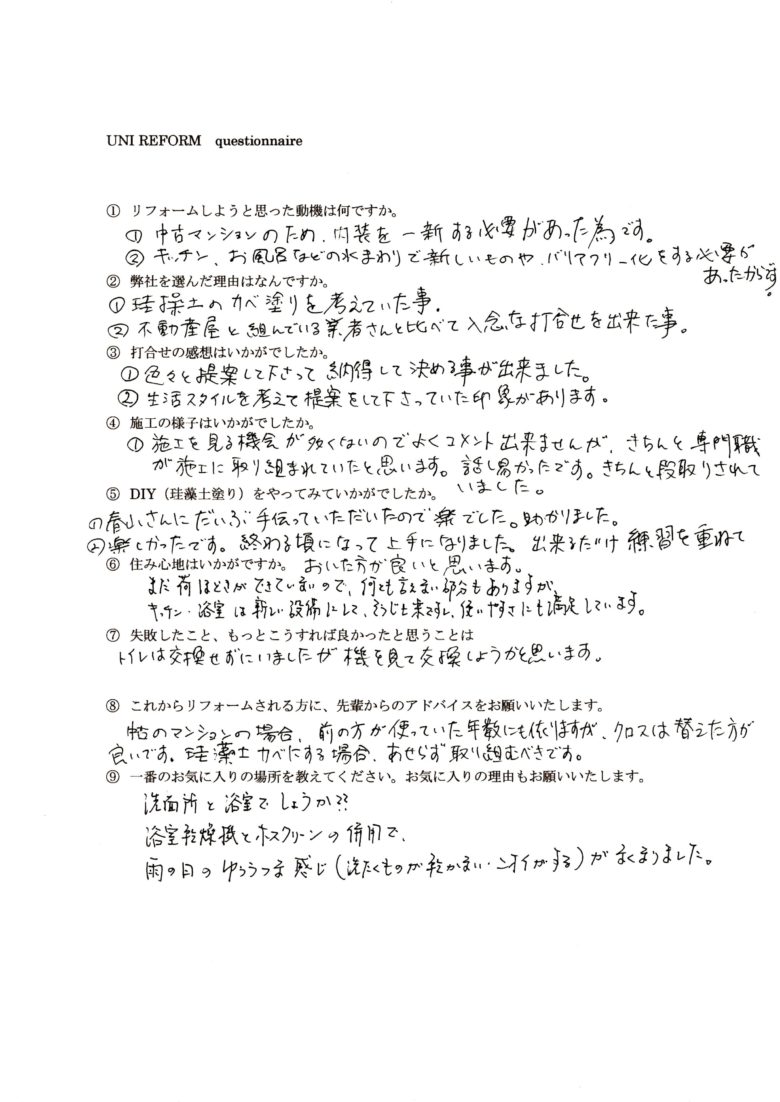 UNI REFORM questionnaire
① リフォームしようと思った動機は何ですか。
① 中古マンションのため、内装を一新する必要があった為です。
② キッチン、お風呂などの水まわりで新しいものや、バリアフリー化をする必要が
あったからです。
② 弊社を選んだ理由はなんですか。
① 珪操土のカベ塗りを考えていた事.
② 不動産屋と組んでいる業者さんと比べて入念な打合せを出来た事。
③ 打合せの感想はいかがでしたか。
① 色々と提案して下さって納得して決める事が出来ました。
② 生活スタイルを考えて提案をして下さっていた印象があります。
④ 施工の様子はいかがでしたか。
① 施工を見る機会が多くないのでよくコメント出来ませんが、きちんと専門職
が施工に取り組まれていたと思います。話し易かったです。きちんと段取りされて
いました。
⑤ DIY（珪藻土塗り）をやってみていかがでしたか。
① 春山さんにだいぶ手伝っていただいたので楽でした。助かりました。
② 楽しかったです。終わる頃になって上手になりました。出来るだけ練習を重ねて
おいた方が良いと思います。
⑥ 住み心地はいかがですか。
まだ荷ほどきができていないので、何とも言えない部分もありますが、
キッチン・浴室は新しい設備にして、そうじも楽ですし、使いやすさにも満足しています。
⑦ 失敗したこと、もっとこうすれば良かったと思うことは
トイレは交換せずにいましたが機を見て交換しようかと思います。
⑧ これからリフォームされる方に、先輩からのアドバイスをお願いいたします。
中古のマンションの場合、前の方が使っていた年数にも依りますが、クロスは替えた方が
良いです。珪藻土カベにする場合、あせらず取り組むべきです。
⑨ 一番のお気に入りの場所を教えてください。お気に入りの理由もお願いいたします。
洗面所と浴室でしょうか??
浴室乾燥機とホスクリーンの併用で、
雨の日のゆううつな感じ（洗たくものが乾かない・ニオイがする）がなくなりました。